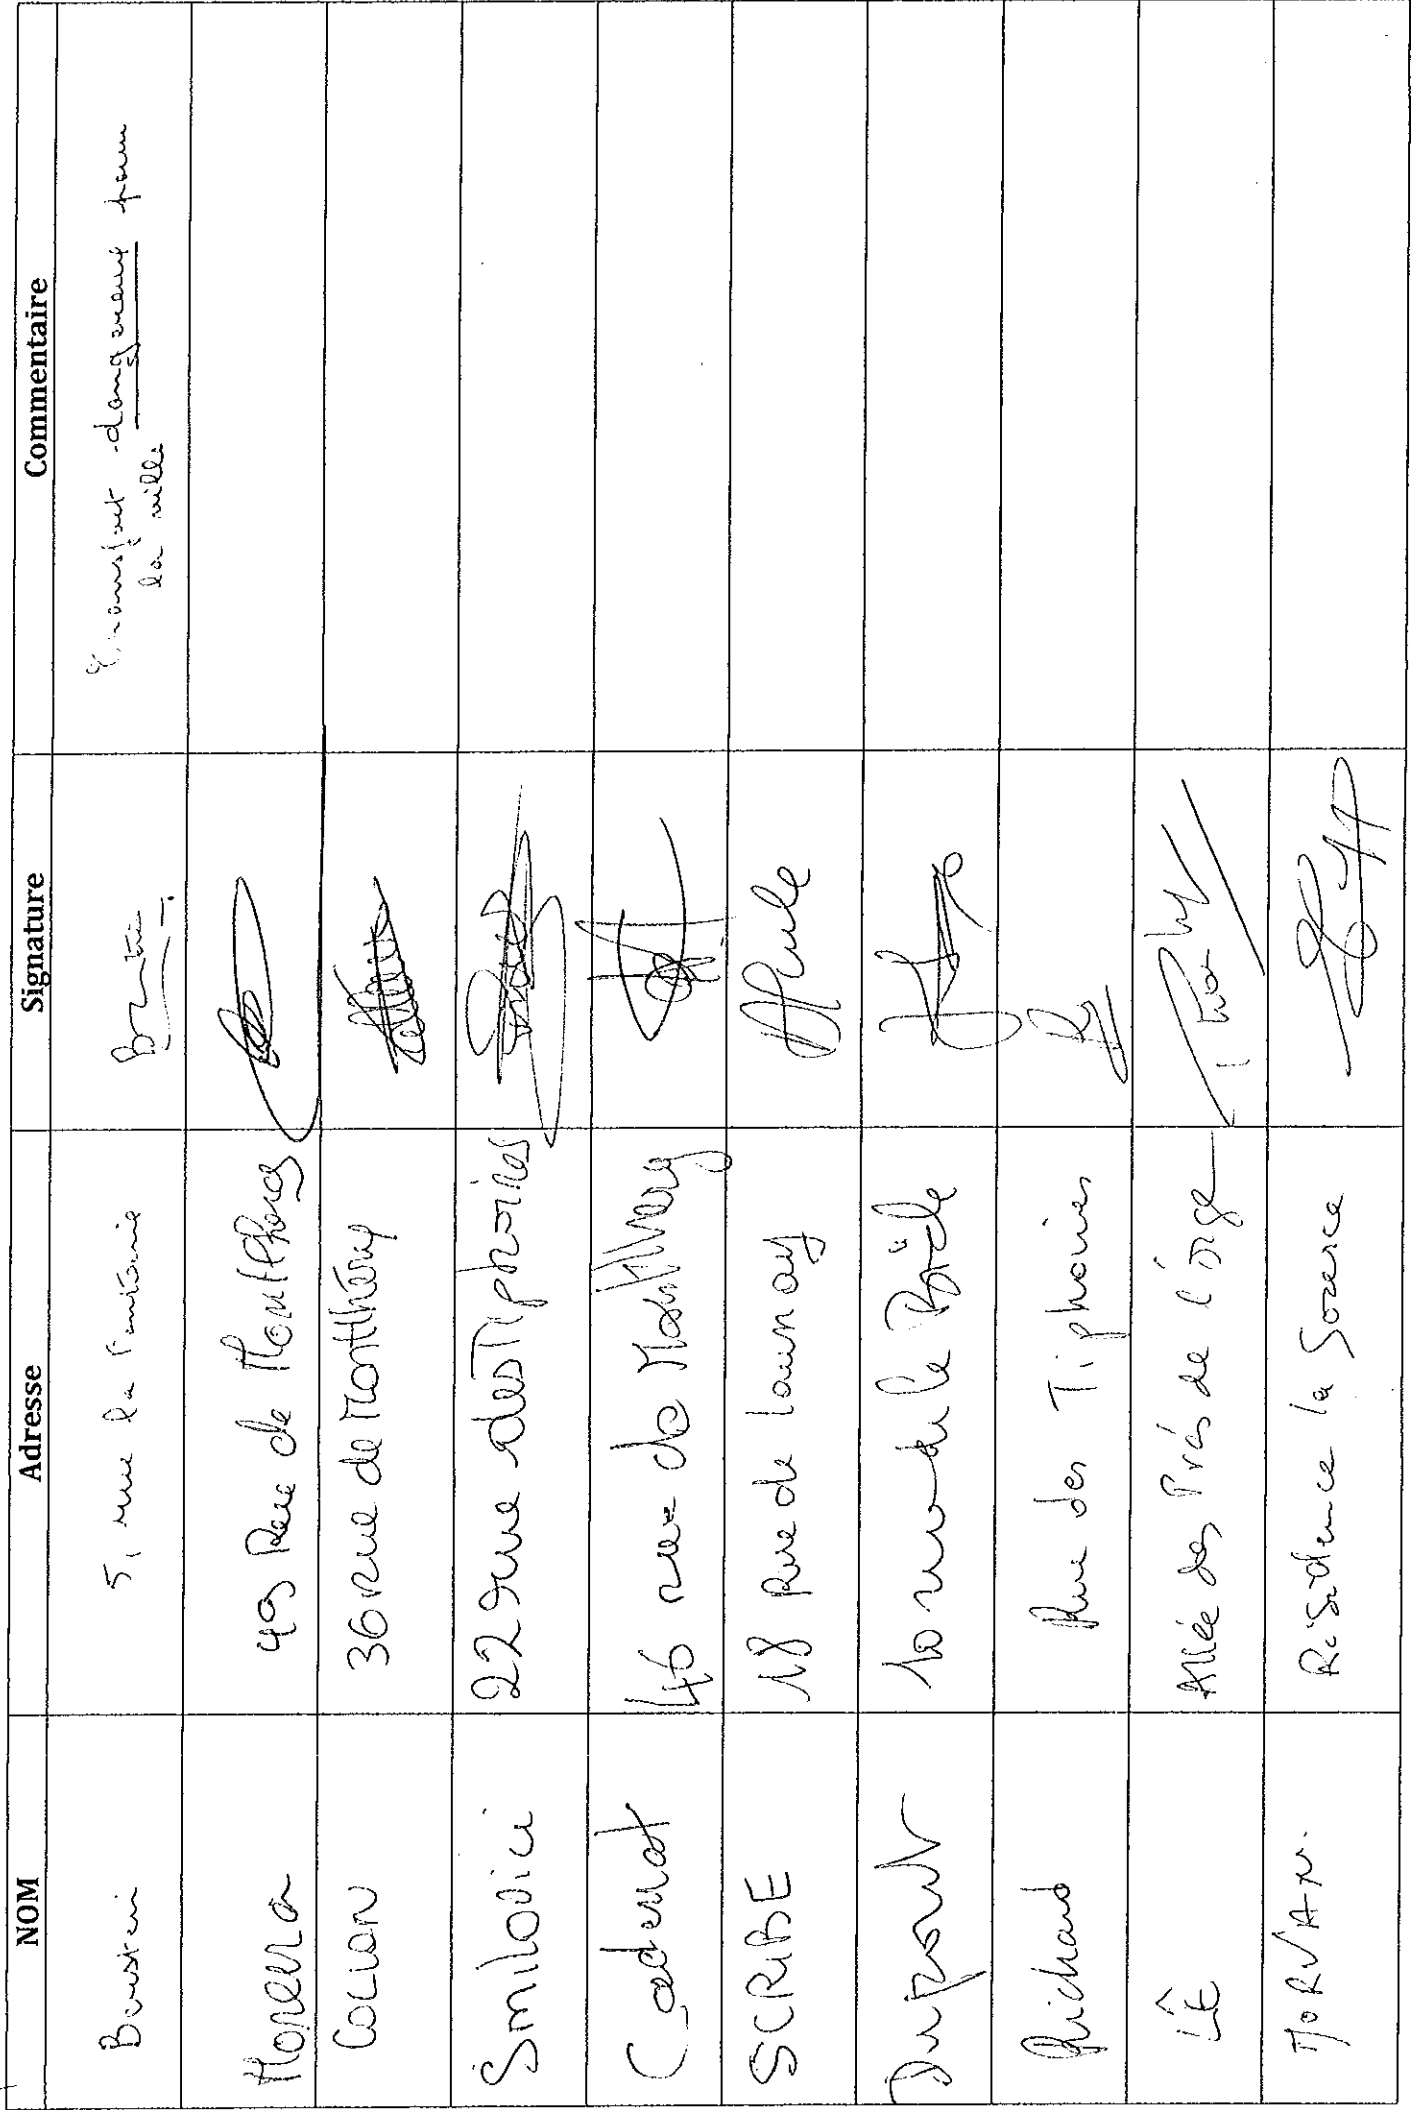 NOM Adresse Signature Commentaire
5, rue la Fontaine dangereux pour
la ville
Morera 49 Rue de Montlhery
COCLON 36 rue de Montlhéry
Smilovici 22 rue des Tiphoines
Cadenat 46 rue de Montlhery
SCRIBE 18 Rue de Launay
Dupont
Richard Rue des Tiphoines
LÊ Allée des Prés de l'orge
MORVAN. Résidence la Source